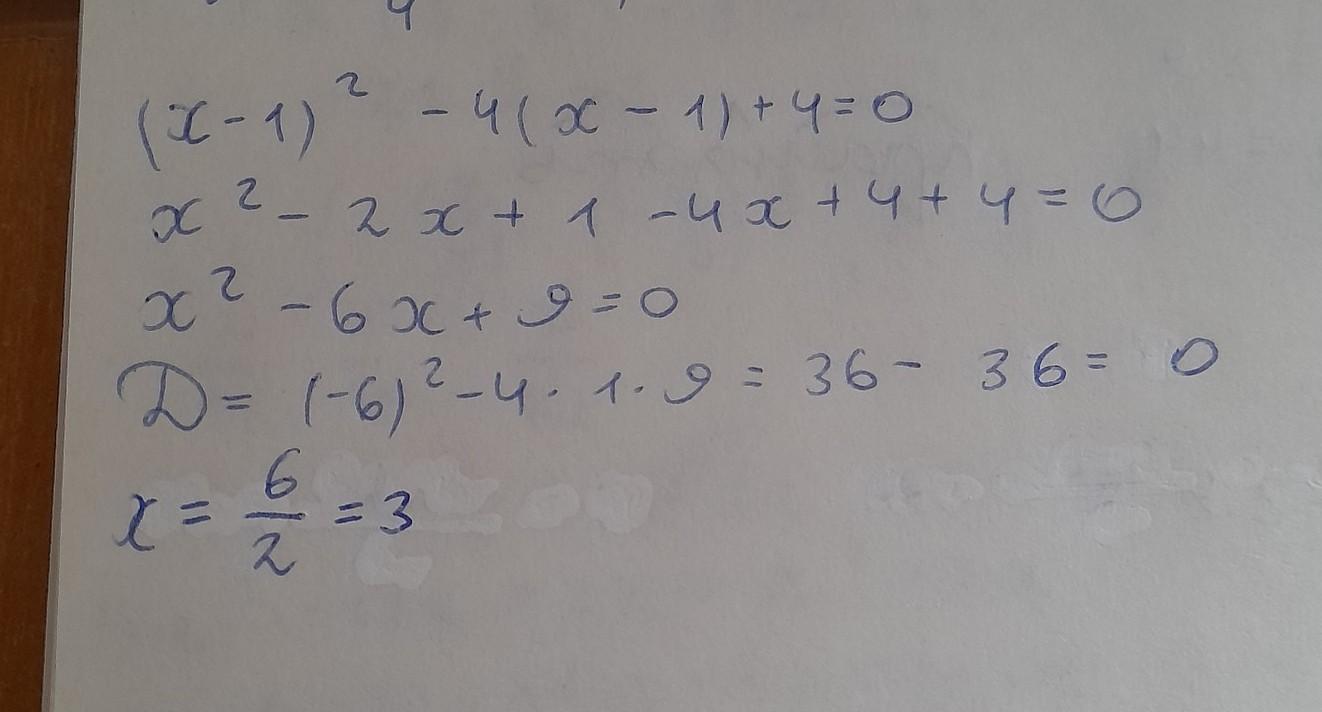 (x-1)² -4(x-1)+4=0
x²-2x+1-4x+4+4=0
x²-6x+9=0
D=(-6)²-4·1·9=36-36=0
x=6/2=3